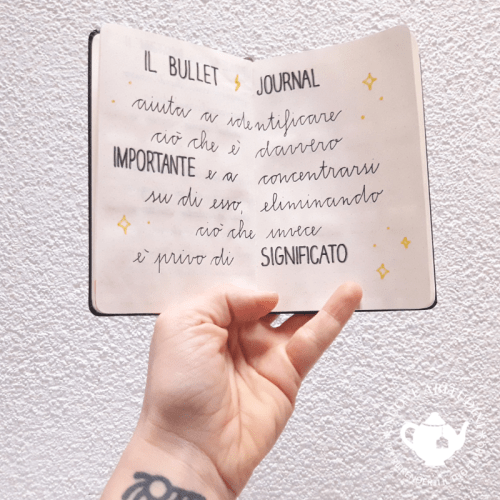 IL BULLET JOURNAL
aiuta a identificare
ciò che è davvero
IMPORTANTE e a concentrarsi
su di esso, eliminando
ciò che invece
è privo di SIGNIFICATO